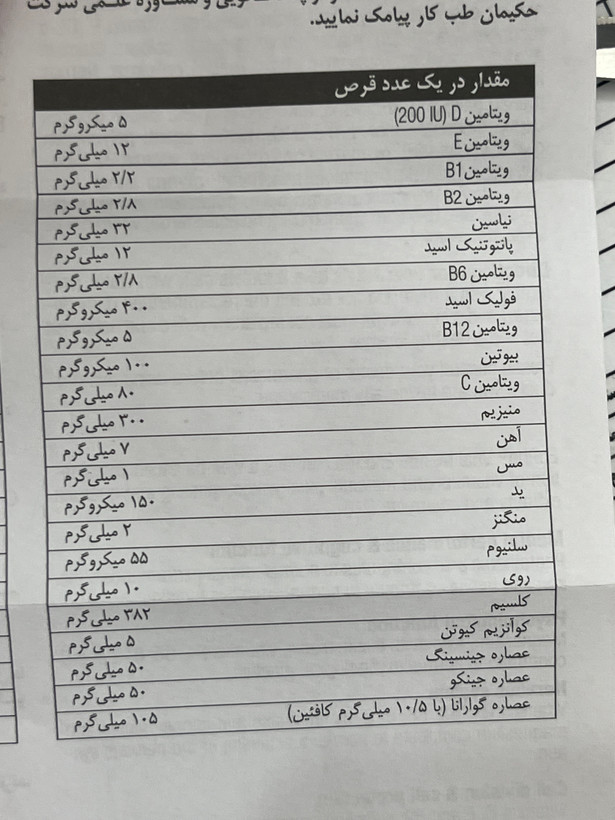 حکیمان طب کار پیامک نمایید.
مقدار در یک عدد قرص
ویتامین D (200 IU) ۵ میکروگرم
ویتامین E ۱۲ میلی‌گرم
ویتامین B1 ۲/۲ میلی‌گرم
ویتامین B2 ۲/۸ میلی‌گرم
نیاسین ۳۲ میلی‌گرم
پانتوتنیک اسید ۱۲ میلی‌گرم
ویتامین B6 ۲/۸ میلی‌گرم
فولیک اسید ۴۰۰ میکروگرم
ویتامین B12 ۵ میکروگرم
بیوتین ۱۰۰ میکروگرم
ویتامین C ۸۰ میلی‌گرم
منیزیم ۳۰۰ میلی‌گرم
آهن ۷ میلی‌گرم
مس ۱ میلی‌گرم
ید ۱۵۰ میکروگرم
منگنز ۲ میلی‌گرم
سلنیوم ۵۵ میکروگرم
روی ۱۰ میلی‌گرم
کلسیم ۳۸۲ میلی‌گرم
کوآنزیم کیوتن ۵ میلی‌گرم
عصاره جینسینگ ۵۰ میلی‌گرم
عصاره جینکو ۵۰ میلی‌گرم
عصاره گوارانا (با ۱۰/۵ میلی‌گرم کافئین) ۱۰۵ میلی‌گرم